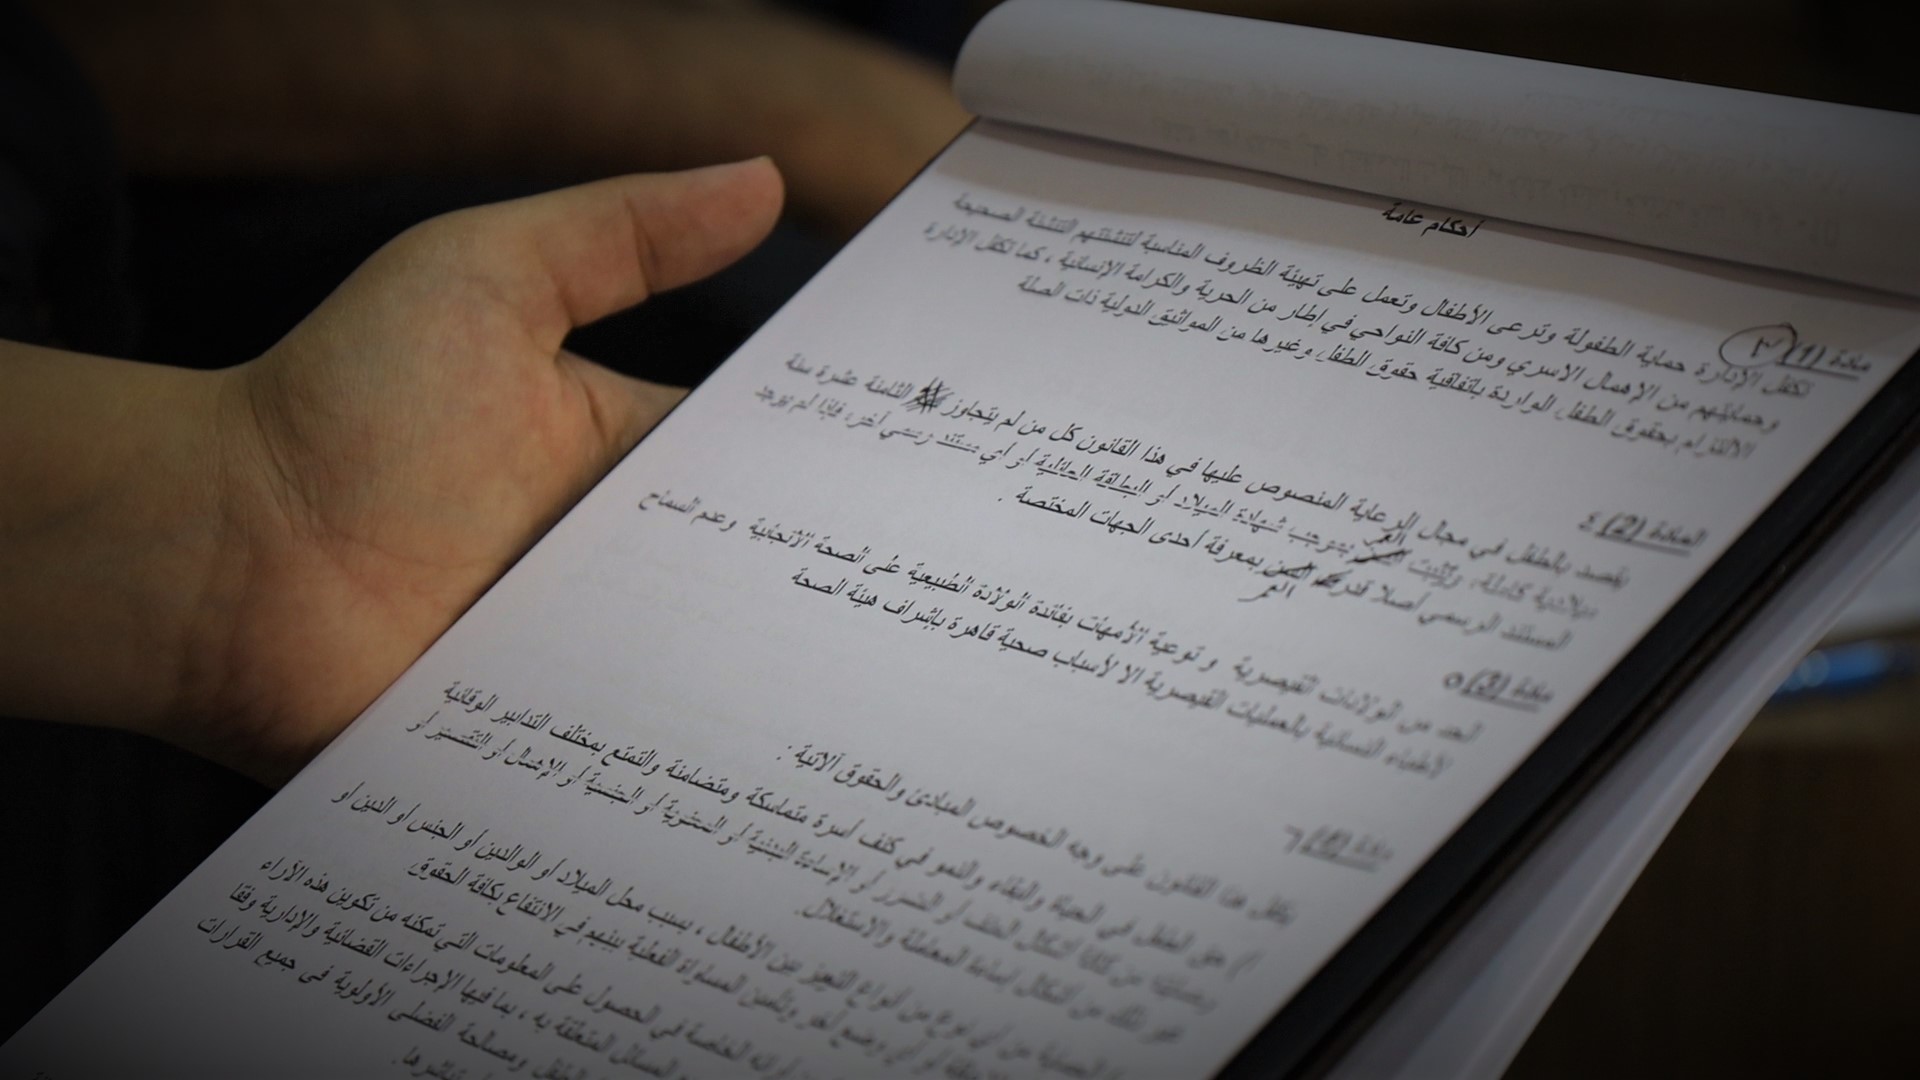 أحكام عامة
مادة (1) ٣
تكفل الإدارة حماية الطفولة وترعى الأطفال وتعمل على تهيئة الظروف المناسبة لتنشئتهم التنشئة الصحيحة
وحمايتهم من الإهمال الاسري ومن كافة النواحي في إطار من الحرية والكرامة الإنسانية ، كما تكفل الإدارة
الالتزام بحقوق الطفل الواردة باتفاقية حقوق الطفل وغيرها من المواثيق الدولية ذات الصلة
المادة (2) ٤
يقصد بالطفل في مجال الرعاية المنصوص عليها في هذا القانون كل من لم يتجاوز الثامنة عشرة سنة
ميلادية كاملة، ويثبت العمر بموجب شهادة الميلاد أو البطاقة العائلية او أي مستند رسمي آخر، فإذا لم يوجد
المستند الرسمي أصلا قدرت العمر بمعرفة أحدى الجهات المختصة .
مادة (3) ٥
الحد من الولادات القيصرية و توعية الأمهات بفائدة الولادة الطبيعية على الصحة الانجابية وعدم السماح
لأطباء النسائية بالعمليات القيصرية الا لأسباب صحية قاهرة بإشراف هيئة الصحة
مادة (4) ٦
يكفل هذا القانون على وجه الخصوص المبادئ والحقوق الآتية :
حق الطفل في الحياة والبقاء والنمو في كنف أسرة متماسكة ومتضامنة والتمتع بمختلف التدابير الوقائية
وحمايته من كافة أشكال العنف أو الضرر أو الإساءة البدنية أو المعنوية أو الجنسية أو الإهمال أو التقصير أو
غير ذلك من أشكال إساءة المعاملة والاستغلال.
الحماية من أي نوع من أنواع التمييز بين الأطفال ، بسبب محل الميلاد أو الوالدين أو الجنس أو الدين او
أو أي وضع آخر وتأمين المساواة الفعلية بينهم في الانتفاع بكافة الحقوق
آرائه الخاصة في الحصول على المعلومات التي تمكنه من تكوين هذه الآراء
المسائل المتعلقة به ، بما فيها الإجراءات القضائية والإدارية وفقا
الطفل ومصالحه الفضلى الأولوية في جميع القرارات